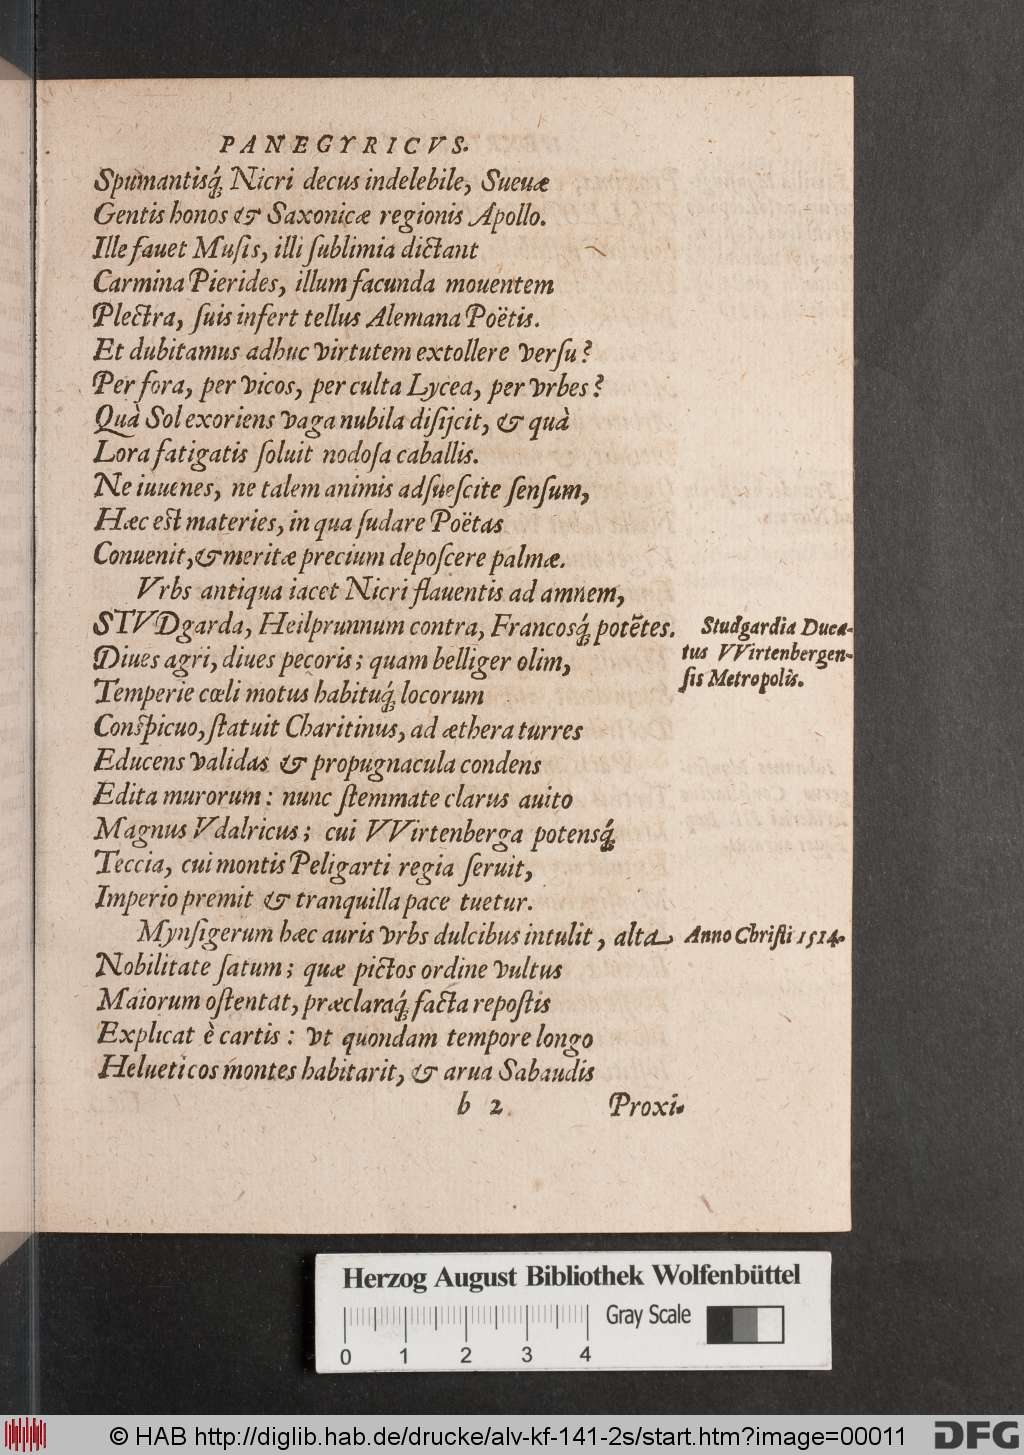 PANEGYRICVS.
Spumantisq́ꝫ Nicri decus indelebile, Sueuæ
Gentis honos & Saxonicæ regionis Apollo.
Ille fauet Muſis, illi ſublimia dictant
Carmina Pierides, illum facunda mouentem
Plectra, ſuis infert tellus Alemana Poëtis.
Et dubitamus adhuc virtutem extollere verſu?
Per fora, per vicos, per culta Lycea, per vrbes?
Quà Sol exoriens vaga nubila diſijcit, & quà
Lora fatigatis ſoluit nodoſa caballis.
Ne iuuenes, ne talem animis adſueſcite ſenſum,
Hæc eſt materies, in qua ſudare Poëtas
Conuenit, & meritæ precium depoſcere palmæ.
Vrbs antiqua iacet Nicri flauentis ad amnem,
STVDgarda, Heilprunnum contra, Francosq́ꝫ potẽtes.
Studgardia Duca-
tus VVirtenbergen-
ſis Metropolis.
Diues agri, diues pecoris; quam belliger olim,
Temperie cœli motus habituq́ꝫ locorum
Conſpicuo, ſtatuit Charitinus, ad æthera turres
Educens validas & propugnacula condens
Edita murorum: nunc ſtemmate clarus auito
Magnus Vdalricus; cui VVirtenberga potensq́ꝫ
Teccia, cui montis Peligarti regia ſeruit,
Imperio premit & tranquilla pace tuetur.
Mynſigerum hæc auris vrbs dulcibus intulit, alta
Anno Chriſti 1514.
Nobilitate ſatum; quæ pictos ordine vultus
Maiorum oſtentat, præclaraq́ꝫ facta repoſtis
Explicat è cartis: vt quondam tempore longo
Helueticos montes habitarit, & arua Sabaudis
b 2
Proxi-
Herzog August Bibliothek Wolfenbüttel
Gray Scale
0 1 2 3 4
© HAB http://diglib.hab.de/drucke/alv-kf-141-2s/start.htm?image=00011
DFG